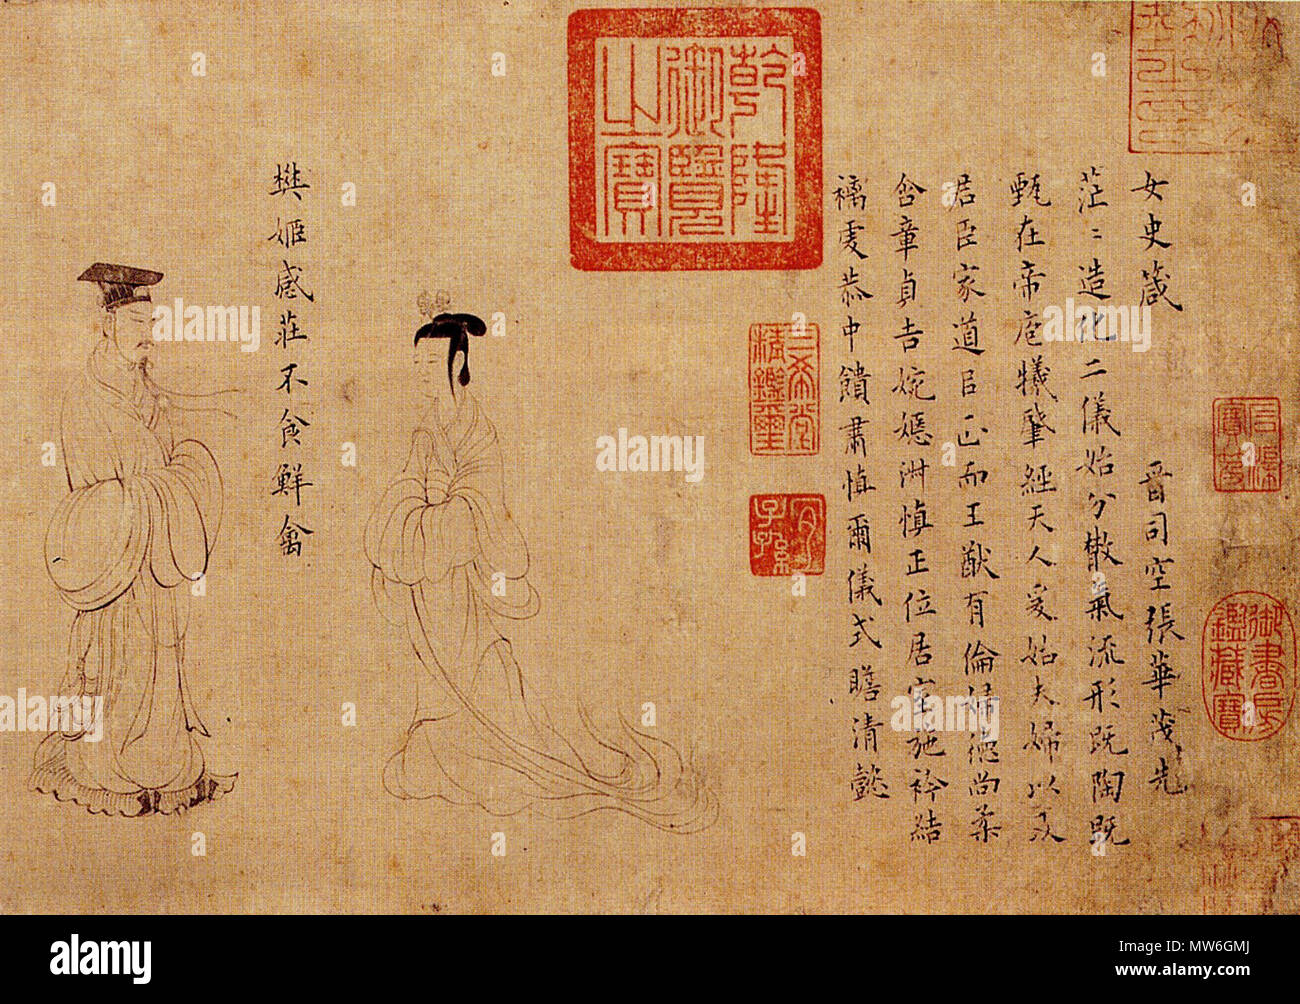 女史箴 晉司空張華茂先
茫〻造化二儀始分散氣流形既陶既
甄在帝庖犧肇經天人爰始夫婦以及
君臣家道㠯正而王猷有倫婦德尚柔
含章貞吉婉嫕淑慎正位居室施衿結
褵虔恭中饋肅慎爾儀式瞻清懿
樊姬感莊不食鮮禽
乾隆御覽之寶
三希堂精鑑璽
宜子孫
石渠寶笈
御書房鑑藏寶
alamy
alamy
Image ID: MW6GMJ
www.alamy.com